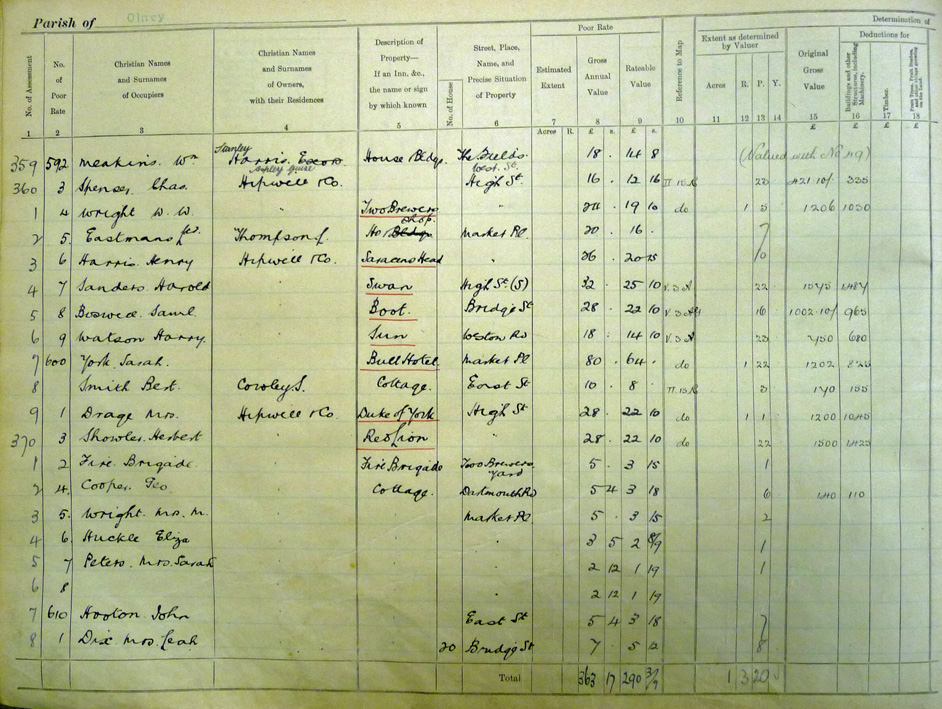 Parish of Olney
Determination of
No. of Assessment
No. of Poor Rate
Christian Names and Surnames of Occupiers
Christian Names and Surnames of Owners, with their Residences
Description of Property— If an Inn, &c., the name or sign by which known
No. of House
Street, Place, Name, and Precise Situation of Property
Poor Rate
Estimated Extent
Gross Annual Value
Rateable Value
Reference to Map
Extent as determined by Valuer
Acres R. P. Y.
Original Gross Value
Deductions for
Buildings and other Structures, including Machinery.
Timber.
1 2 3 4 5 6 7 8 9 10 11 12 13 14 15 16 17 18
Acres R. £ s. £ s. £ £ £ £
359 592 Meakins. Wm Stanley Harris. House Bldgs. The Fields West. St. 18 . 14 8 (Valued with No 49)
360 3 Spenser Chas. Hipwell & Co. High St. 16 . 12 16 23 421.10/ 335
1 4 Wright W. W. " Two Brewers " 24 . 19 10 do 1 5 1206 1030
2 5. Eastmans Ltd. Thompson J. Ho Shop. Bldgs Market Pl. 20 . 16 . 7
3 6 Harris Henry Hipwell & Co. Saracens Head " 26 . 20 15 10
4 7 Sanders Harold Swan High St (S) 32 . 25 10 22 1575 1487
5 8 Saml. Boot. Bridge St 28 . 22 10 16 1002.10/ 965
6 9 Watson Harry. Sun Weston Rd 18 . 14 10 23 750 680
7 600 York. Sarah. Bull Hotel. Market Pl 80 . 64 . do 1 22 1202 825
8 Smith Bert. Cowley S. Cottage. East St 10 . 8 . 3 170 155
9 1 Drage Mrs. Hipwell & Co. Duke of York High St 28 . 22 10 do 1 1 1200 1045
370 3 Showler Herbert Red Lion " 28 . 22 10 do 22 1500 1425
1 2 Fire Brigade. Fire Brigade Two Brewers Yard 5 . 3 15 1
2 4. Cooper Geo Cottage. Dartmouth Rd 5 4 3 18 6 140 110
3 5. Wright. Mrs. M. Market Pl. 5 . 3 15 2
4 6. Huckle Eliza " 3 5 2 8/9 1
5 7 Peters. Mrs. Sarah " 2 12 1 19 1
6 8 " 2 12 1 19
7 610 Hooton John East St 5 4 3 18 7
8 1 Dix Mrs. Leah 20 Bridge St 7 . 5 12 8
Total 363 17 290 3/9 1 3 20